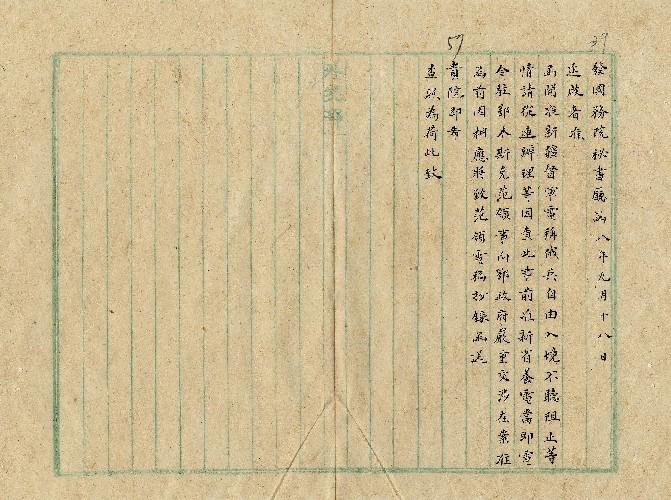 59
發國務院秘書廳函八年九月十八日
逕啟者准
函開准新疆督軍電稱俄兵自由入境不聽阻止等
情請從速辦理等因查此事前准新省養電當即電
令駐鄂木斯克范領事向鄂政府嚴重交涉在案准
函前因相應將致范領電稿抄錄函送
貴院即希
查照為荷此致
外交部